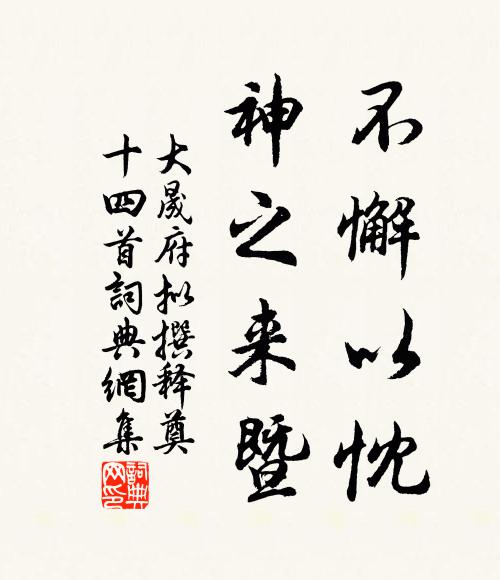 不懈以忱
神之来暨
大晟府拟撰释奠
十四首詞典網集
詞典
网印